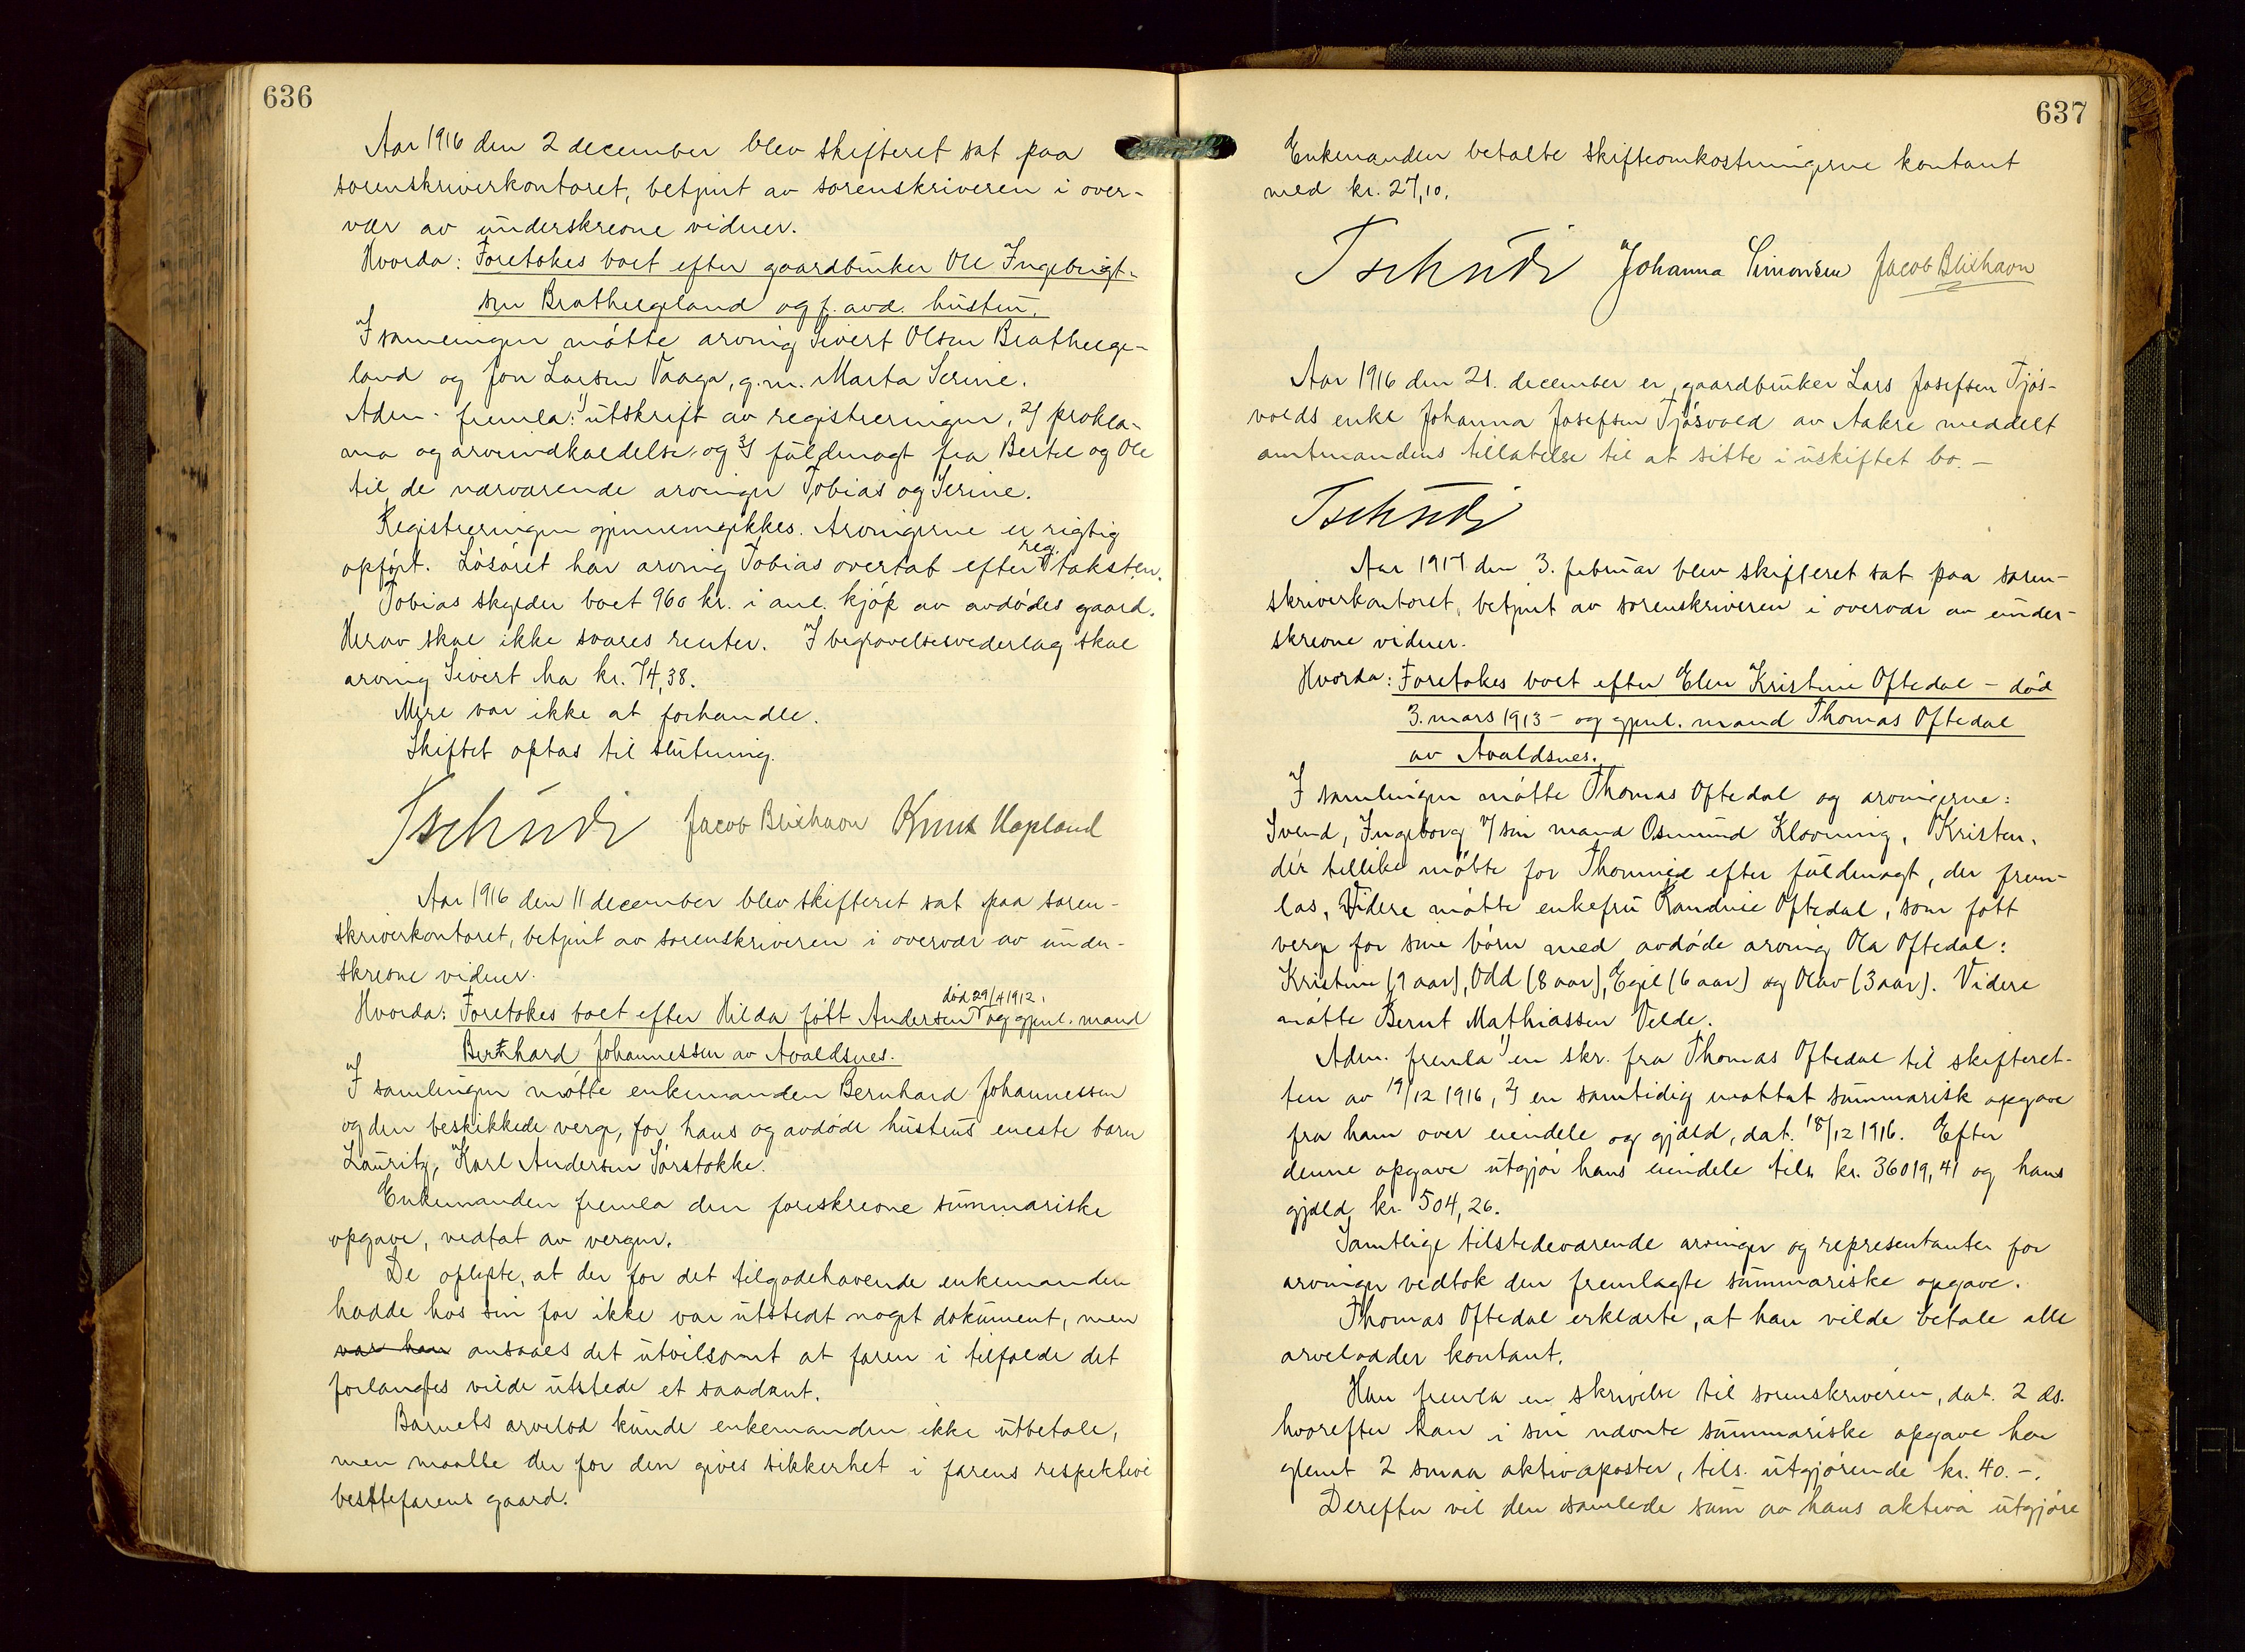 636
Aar 1916 den 2 december blev skifteret sat paa
sorenskriverkontoret, betjent av sorenskriveren i over-
vær av underskrevne vidner.
Hvorda: Foretokes boet efter gaardbruker Ole Ingebrigt-
sen Brathelgeland og f. avd. hustru.
I samlingen møtte arving Sivert Olsen Brathelge-
land og Jon Larsen Vaage, g.m. Marta Serine.
Adm. fremla: 1) utskrift av registreringen, 2) prokla-
ma og arveindkaldelse, og 3) fuldmagt fra Bertel og Ole
til de nærværende arvinger Tobias og Serine.
Registreringen gjennemgikkes. Arvingerne er rigtig
opført. Løsøret har arving Tobias overtat efter reg. taksten.
Tobias skylder boet 960 kr. i anl. kjøp av avdødes gaard.
Herav skal ikke svares renter. I begravelsesvederlag skal
arving Sivert ha kr. 74,38.
Mere var ikke at forhandle.
Skiftet optas til slutning.
Tschudi Jacob Blixhavn Knut Hapland
Aar 1916 den 11 december blev skifteret sat paa soren-
skriverkontoret, betjent av sorenskriveren i overvær av under-
skrevne vidner.
Hvorda: Foretokes boet efter Hilda født Andersen død 29/4 1912. og gjenl. mand
Bernhard Johannessen av Avaldsnes.
I samlingen møtte enkemanden Bernhard Johannessen
og den beskikkede verge, for hans og avdøde hustrus eneste barn
Lauritz, Karl Andersen Sørstokke.
Enkemanden fremla den foreskrevne summariske
opgave, vedtat av vergen.
De oplyste, at der for det tilgodehavende enkemanden
hadde hos sin far ikke var utstedt noget dokument, men
var han ansaaes det utvilsomt at faren i tilfælde det
forlangtes vilde utstede et saadant.
Barnets arvelod kunde enkemanden ikke utbetale,
men maatte der for den gives sikkerhet i farens respektive
bestefarens gaard.
637
Enkemanden betalte skifteomkostningerne kontant
med kr. 27,10.
Tschudi Johanna Simonsen Jacob Blixhavn
Aar 1916 den 21. december er gaardbruker Lars Josefsen Tjøs-
volds enke Johanna Josefsen Tjøsvold av Aakre meddelt
amtmandens tillatelse til at sitte i uskiftet bo. -
Tschudi
Aar 1917 den 3. februar blev skifteret sat paa soren-
skriverkontoret, betjent av sorenskriveren i overvær av under-
skrevne vidner.
Hvorda: Foretokes boet efter Elen Kristine Oftedal - død
3. mars 1913 - og gjenl. mand Thomas Oftedal
av Avaldsnes.
I samlingen møtte Thomas Oftedal og arvingerne:
Svend, Ingeborg v/ sin mand Osmund Klovning, Kristen,
der tillike møtte for Thomine efter fuldmagt, der frem-
las, Videre møtte enkefru Randvie Oftedal, som født
verge for sine børn med avdøde arving Ola Oftedal:
Kristine (9 aar), Odd (8 aar), Egil (6 aar) og Olav (3 aar). Videre
møtte Bernt Mathiassen Velde.
Adm. fremla 1) en skr. fra Thomas Oftedal til skifteret-
ten av 19/12 1916, 2) en samtidig mottat summarisk opgave
fra ham over eiendele og gjæld, dat. 18/12 1916. Efter
denne opgave utgjør hans eiendele tils. kr. 36019,41 og hans
gjæld kr. 504,26.
Samtlige tilstedeværende arvinger og representanter for
arvinger vedtok den fremlagte summariske opgave.
Thomas Oftedal erklærte, at han vilde betale alle
arvelodder kontant.
Han fremla en skrivelse til sorenskriveren, dat. 2 ds.
hvorefter han i sin nævnte summariske opgave har
glemt 2 smaa aktivaposter, tils. utgjørende kr. 40.-.
Derefter vil den samlede sum av hans aktiva utgjøre